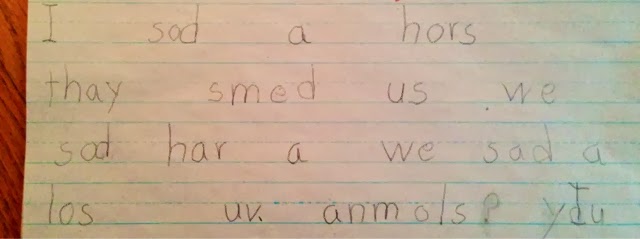 I sad a hors
thay smed us we
sad har a we sad a
los uv. anmols?